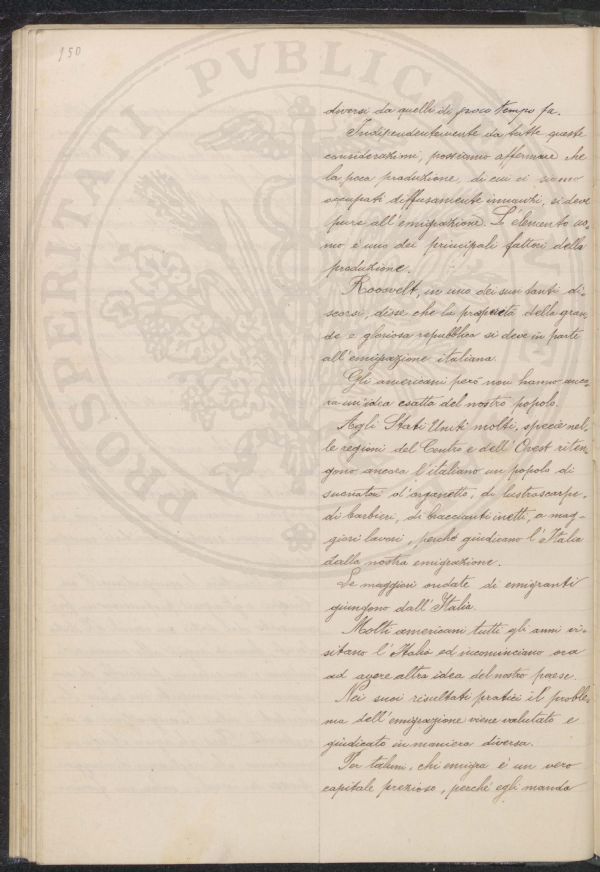 150
PROSPERITATI PVBLICAE
diversi da quelli di poco tempo fa.
Indipendentemente da tutte queste
considerazioni, possiamo affermare che
la poca produzione, di cui ci siamo
occupati diffusamente innanzi, si deve
pure all'emigrazione. L'elemento uo-
mo è uno dei principali fattori della
produzione.
Roosvelt, in uno dei suoi tanti di-
scorsi, disse che la proprietà della gran-
de e gloriosa repubblica si deve in parte
all'emigrazione italiana.
Gli americani però non hanno anco-
ra un'idea esatta del nostro popolo.
Agli Stati Uniti molti, specie nel-
le regioni del Centro e dell'Ovest riten-
gono ancora l'italiano un popolo di
suonatori d'organetto, di lustrascarpe,
di barbieri, di braccianti inetti, a mag-
giori lavori, perché giudicano l'Italia
dalla nostra emigrazione.
Le maggiori ondate di emigranti
giungono dall'Italia.
Molti americani tutti gli anni vi-
sitano l'Italia ed incominciano ora
ad avere altra idea del nostro paese.
Nei suoi risultati pratici il proble-
ma dell'emigrazione viene valutato e
giudicato in maniera diversa.
Per taluni, chi emigra è un vero
capitale prezioso, perché egli manda